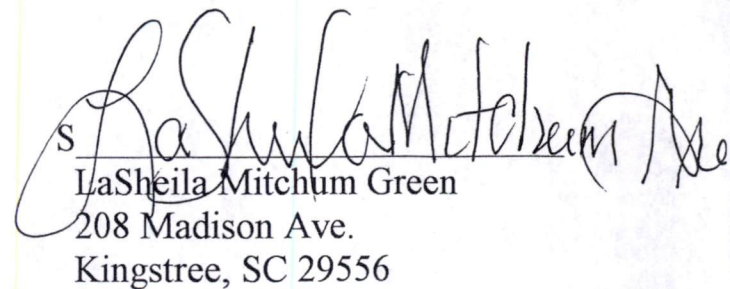 S LaSheila Mitchum Green
LaSheila Mitchum Green
208 Madison Ave.
Kingstree, SC 29556